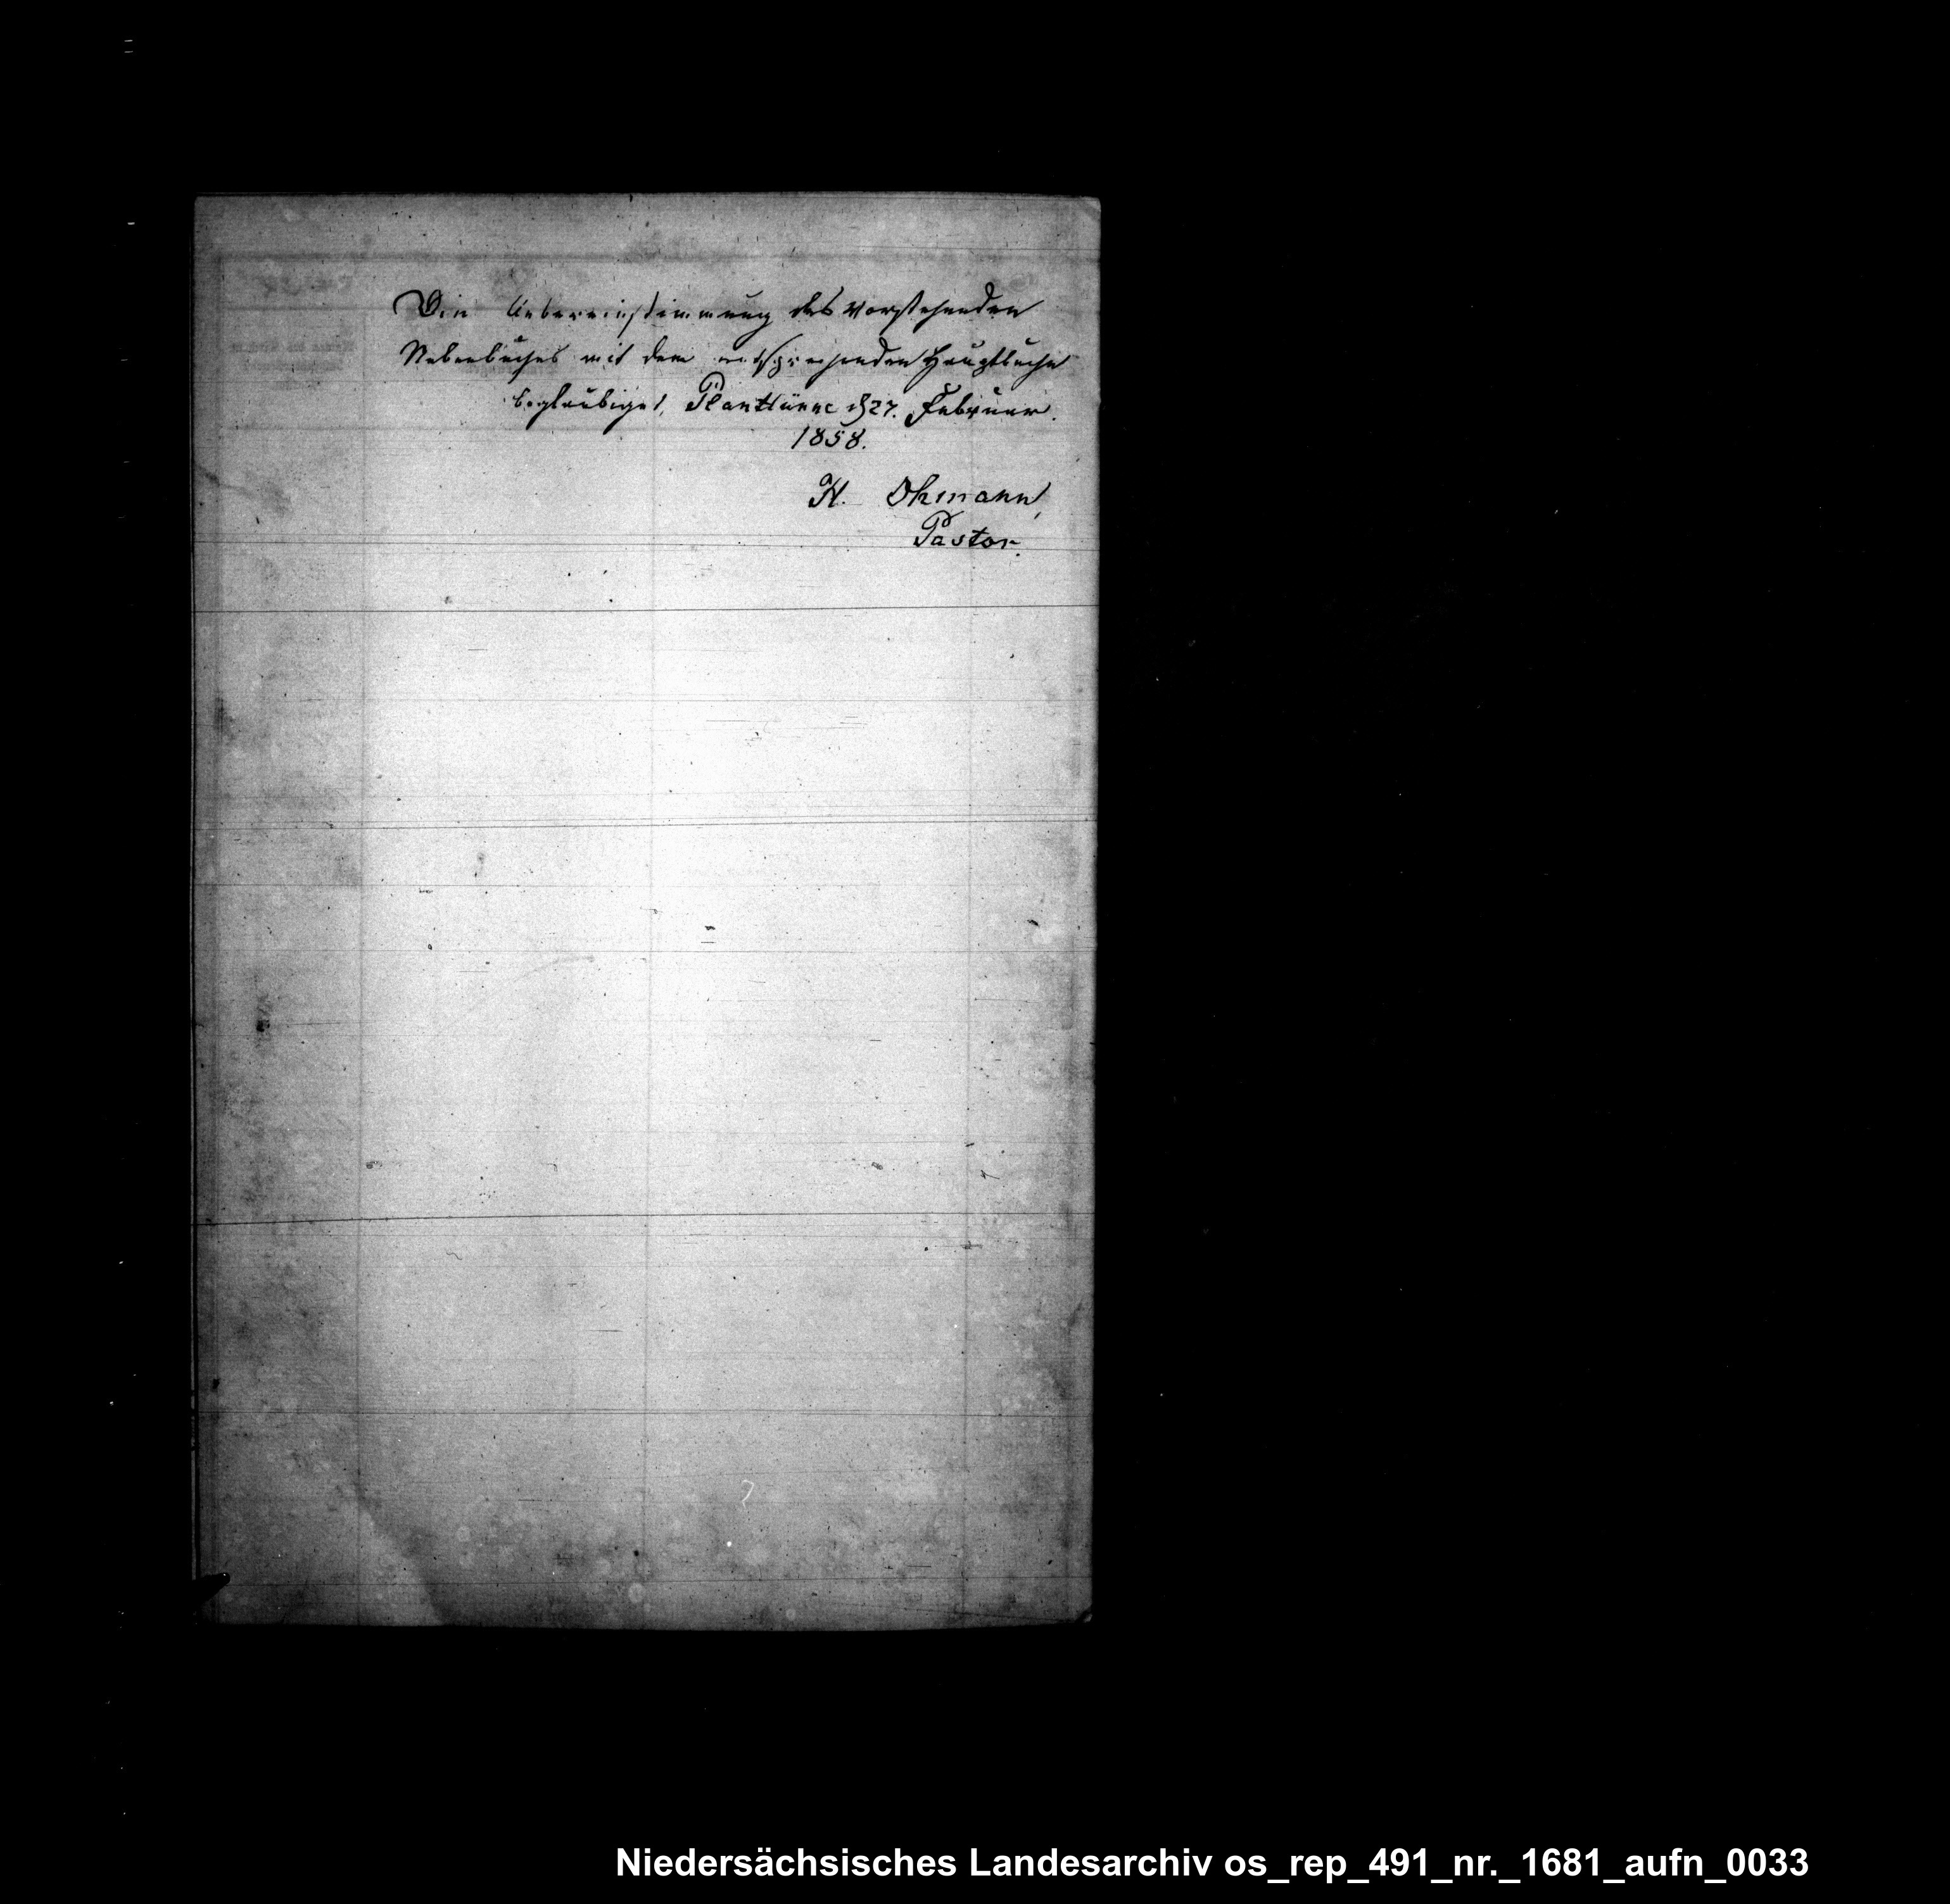 Die Uebereinstimmung des vorstehenden
Nebenbuches mit dem entsprechenden Hauptbuche
beglaubiget, Plantlünne d 27. Februar.
1858.
H. Ohmann,
Pastor.
Niedersächsisches Landesarchiv os_rep_491_nr._1681_aufn_0033